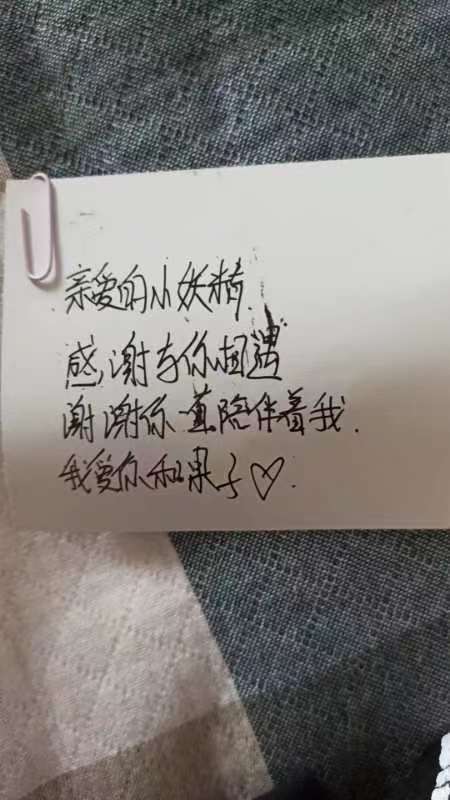 亲爱的小妖精.
感谢与你相遇
谢谢你一直陪伴着我.
我爱你和果子♡.